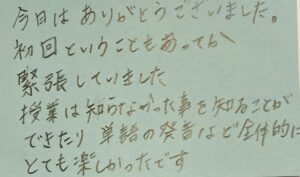 今日は ありがとうございました。
初回ということもあって
緊張していました
授業は知らなかった事を知ることが
できたり 単語の発音など全体的に
とても楽しかったです